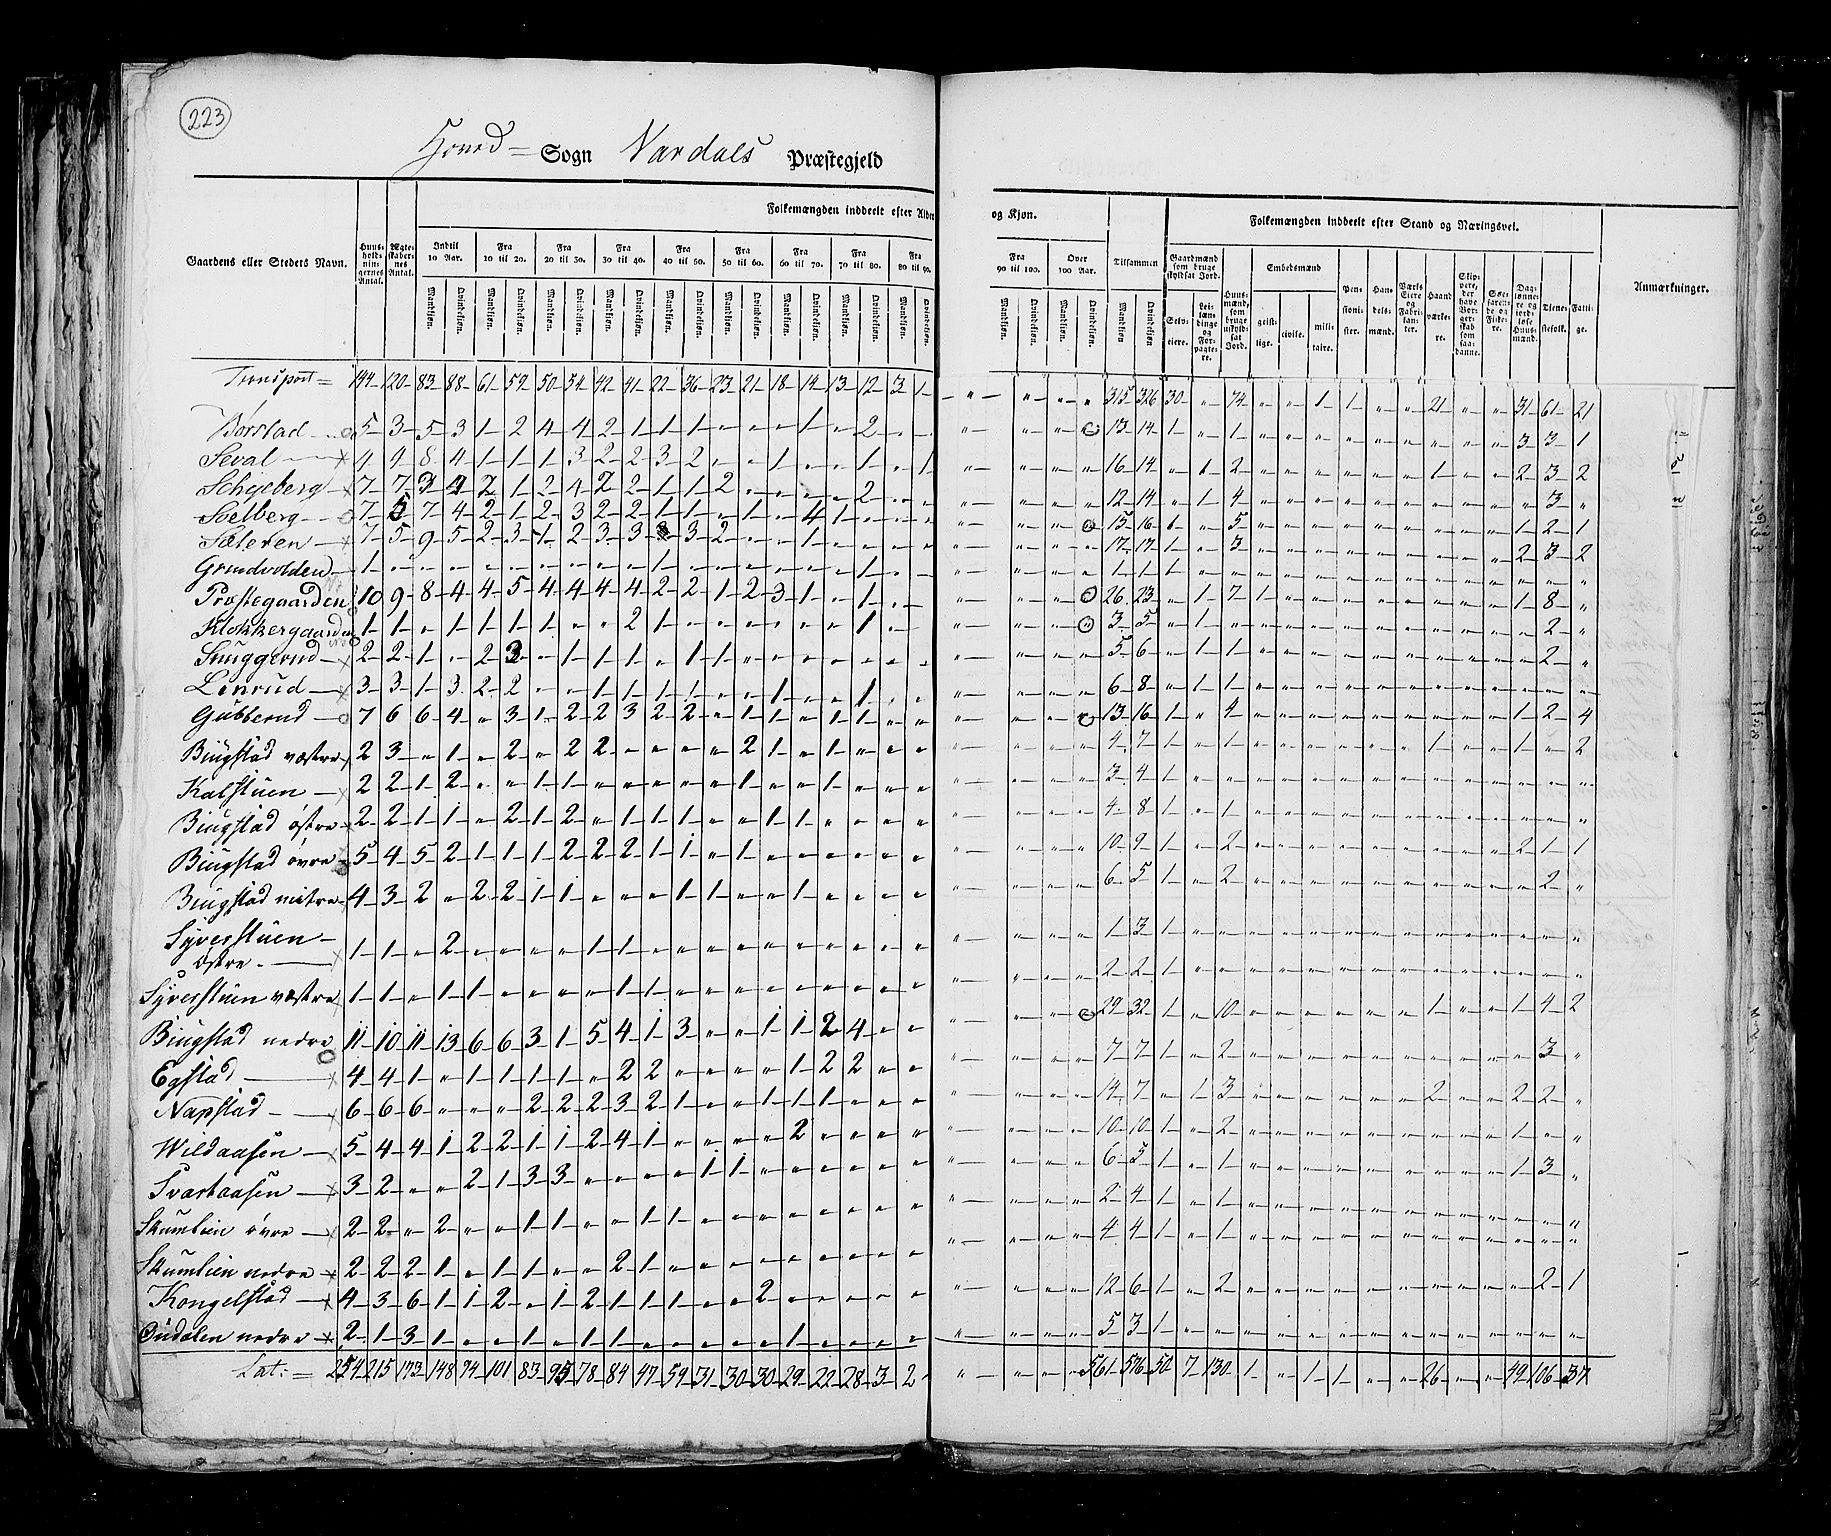 223
Hoved= Sogn Vardals Præstegjeld
Gaardens eller Stedets Navn.
Huus-
hold-
nin-
gernes
Antal.
Ægte-
skaber-
nes
Antal.
Folkemængden inddeelt efter Alder
og Kjøn.
Indtil 10 Aar.
Fra 10 til 20.
Fra 20 til 30.
Fra 30 til 40.
Fra 40 til 50.
Fra 50 til 60.
Fra 60 til 70.
Fra 70 til 80.
Fra 80 til 90.
Fra 90 til 100.
Over 100 Aar.
Tilsammen
Mandkjøn. Qvindekjøn.
Folkemængden inddeelt efter Stand og Næringsvei.
Gaardmænd som bruge skyldsat Jord.
Selv-
eiere.
Lei-
læn-
dinge
og
For-
pagte-
re.
Huus-
mænd,
som
bruge
uskyld-
sat
Jord.
Embedsmænd
geist-
lige.
civile.
mili-
taire.
Pen-
sioni-
ster.
Han-
dels-
mænd.
Værks
Eiere
og
Fabri-
kan-
ter.
Haand
værke-
re.
Skip-
pere,
der
have
Bor-
ger-
skab
som
saa-
danne.
Søe-
faren-
de og
Fiske-
re.
Dag-
lønne-
re og
jord-
løse
Huus-
mænd.
Tjene-
stefolk.
Fatti-
ge.
Anmærkninger.
Transport= 144 120 83 88 61 52 50 54 42 41 22 36 23 21 18 14 13 12 3 1 " " " " 315 326 30 " 74 " " 1 1 " " 21 " " 31 61 21
Børstad 5 3 5 3 1 2 4 4 2 1 1 1 " " " 1 " 2 " " " " " " 13 14 1 " 1 " " " " " " " " " 3 3 1
Seval 4 4 8 4 1 1 1 3 2 2 3 2 " " 1 " " 1 " 1 " " " " 16 14 " 1 2 " " " " " " 1 " " 2 3 2
Schyeberg 7 7 3 4 2 1 2 4 2 2 1 1 2 " " " " 2 " " " " " " 12 14 " 1 4 " " " " " " " " " " 3 "
Soelberg 7 5 7 4 2 1 2 3 2 2 1 1 " 1 " 4 1 " " " " " " " 15 16 1 " 5 " " " " " " " " " 1 2 1
Sæteren 7 5 9 5 2 3 1 2 3 3 " 3 2 " " 1 " " " " " " " " 17 17 1 " 3 " " " " " " " " " 2 3 2
Grundvolden 1 " " " " " " " " " 1 " " " " " " 1 " " " " " " 1 1 1 " " " " " " " " " " " " " "
Præstegaarden 10 9 8 4 4 5 4 4 4 4 2 2 1 2 3 1 " 1 " " " " " " 26 23 " 1 7 1 " " " " " " " " 1 8 "
Klokkergaarden 1 1 " 1 1 1 1 " " 2 1 " " " " " " 1 " " " " " " 3 5 " 1 " " " " " " " " " " " 2 "
Snuggerud 2 2 1 " 2 3 " 1 1 1 " 1 1 " " " " " " " " " " " 5 6 " 1 1 " " " " " " " " " " 2 "
Linrud 3 3 1 3 2 2 " " 1 1 1 1 " " 1 " " 1 " " " " " " 6 8 " 1 1 " " " " " " " " " " " "
Gubberud 7 6 6 4 " 3 1 2 2 3 2 2 " 1 1 1 1 " " " " " " " 13 16 1 " 4 " " " " " " " " " 1 2 4
Biugstad væstre 2 3 " 1 " 2 " 2 2 " " " " 2 1 " 1 " " " " " " " 4 7 1 " 1 " " " " " " 1 " " 1 " 2
Kalstuen 2 2 1 2 " " 1 1 " " " " " 1 " " 1 " " " " " " " 3 4 1 " " " " " " " " " " " " " "
Biugstad østre 2 2 1 1 " 2 1 2 " 1 1 1 " " 1 1 " " " " " " " " 4 8 1 " 1 " " " " " " " " " " " "
Biugstad øvre 5 4 5 2 1 1 1 2 2 2 1 1 " 1 " " " " " " " " " " 10 9 1 " 2 " " " " " " " " " 2 1 1
Biugstad mitre 4 3 2 " 2 2 1 1 " " " 1 1 " " 1 " " " " " " " " 6 5 1 " 2 " " " " " " " " " " 2 "
Syverstuen
østre 1 1 " 2 " " " " 1 1 " " " " " " " " " " " " " " 1 3 1 " " " " " " " " " " " " " "
Syverstuen væstre 1 1 " 1 1 " " " " 1 1 " " " " " " " " " " " " " 2 2 1 " " " " " " " " " " " " " "
Biugstad nedre 11 10 11 13 6 6 3 1 5 4 1 3 " " 1 1 2 4 " " " " " " 29 32 1 " 10 " " " " " " 1 " " 1 4 2
Egstad 4 4 1 " 1 1 1 1 " 2 2 " " " " 1 2 2 " " " " " " 7 7 1 " 2 " " " " " " " " " " 3 "
Napstad 6 6 6 " " " 2 2 2 3 2 1 " " 1 1 1 " " " " " " " 14 7 " 1 3 " " " " " " 2 " " 2 2 "
Wildaasen 5 4 4 1 2 2 1 1 2 4 1 " " " " 2 " " " " " " " " 10 10 1 " 2 " " " " " " " " " 1 " "
Svartaasen 3 2 " " 2 1 3 3 " " " " 1 1 " " " " " " " " " " 6 5 1 " 1 " " " " " " " " " 1 3 "
Skumlien øvre 2 2 " 2 " " 1 1 " " 1 1 " " " " " " " " " " " " 2 4 1 " 1 " " " " " " " " " " " "
Skumlien nedre 2 2 2 1 " 1 1 " " 2 1 " " " " " " " " " " " " " 4 4 1 " 1 " " " " " " " " " " " "
Kongelstad 4 3 6 1 1 2 " 1 2 1 1 1 " " 2 " " " " " " " " " 12 6 1 " 2 " " " " " " " " " " 2 1
Dudalen nedre 2 1 3 1 " " 1 " 1 1 " " " " " 1 " " " " " " " " 5 3 1 " " " " " " " " " " " " " "
Lat:= 254 215 173 148 94 101 83 95 78 84 47 59 31 30 30 29 22 28 3 2 " " " " 561 576 50 7 130 1 " 1 1 " " 26 " " 49 106 37